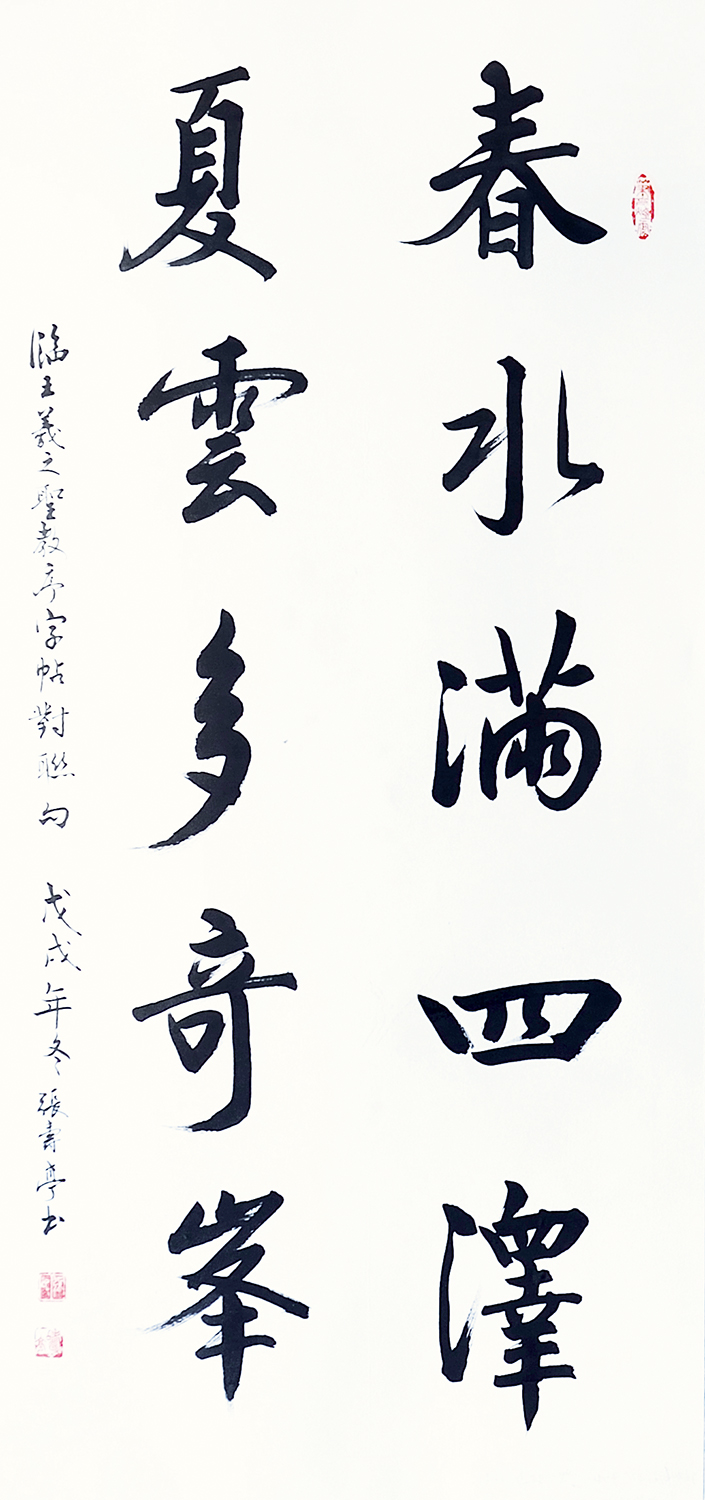 春水滿四澤
夏雲多奇峯
臨王羲之聖教序字帖對聯句 戊戌年冬 張壽亭书